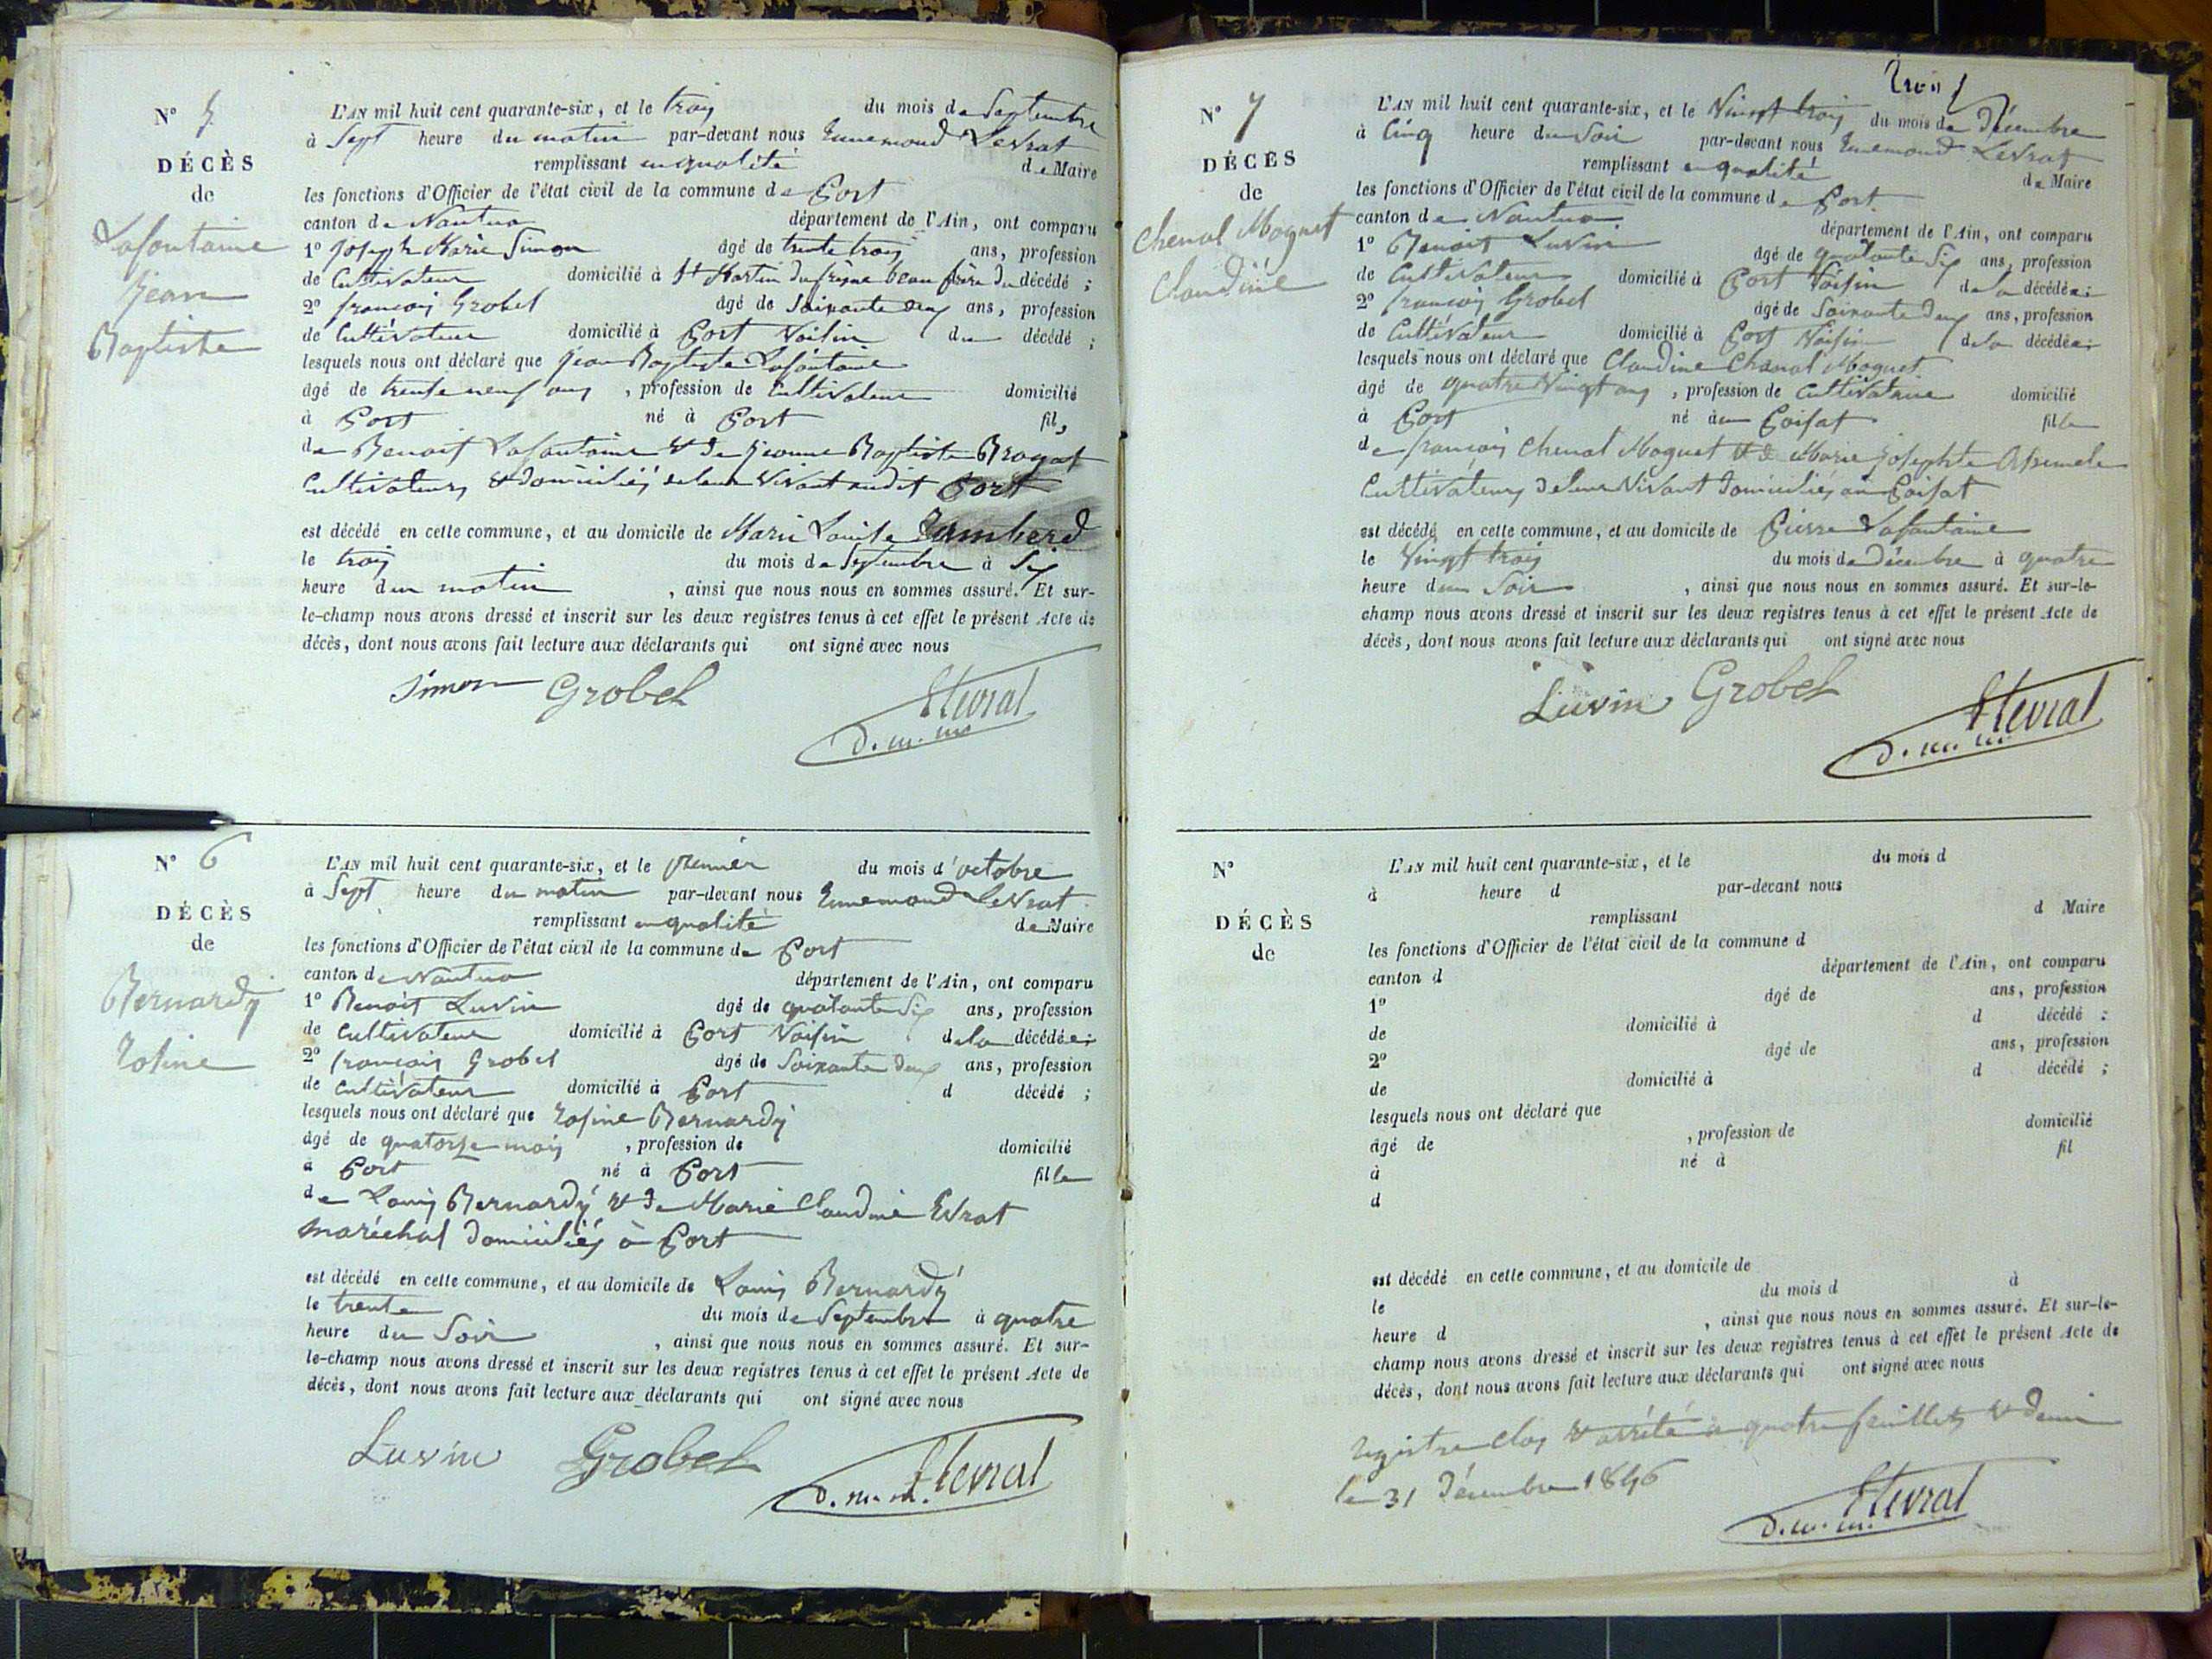 N° 5
DÉCÈS
de
Lafontaine
Jean
Baptiste
L'AN mil huit cent quarante-six, et le trois du mois de Septembre
à Sept heure du matin par-devant nous Ennemond Levrat
remplissant en qualité de Maire
les fonctions d'Officier de l'état civil de la commune de Port
canton de Nantua département de l'Ain, ont comparu
1° Joseph Marie Simon âgé de trente trois ans, profession
de Cultivateur domicilié à St Martin du frêne beau frère du décédé ;
2° françois Grobel âgé de Soixante deux ans, profession
de Cultivateur domicilié à Port Voisin du décédé ;
lesquels nous ont déclaré que Jean Baptiste Lafontaine
âgé de trente neuf ans , profession de Cultivateur domicilié
à Port né à Port fils
de Benoit Lafontaine & de Jeanne Baptiste
Cultivateurs & domiciliés de leur Vivant audit Port
est décédé en cette commune, et au domicile de Marie Louise Humberd
le trois du mois de Septembre à Six
heure du matin , ainsi que nous nous en sommes assuré. Et sur-
le-champ nous avons dressé et inscrit sur les deux registres tenus à cet effet le présent Acte de
décès, dont nous avons fait lecture aux déclarants qui ont signé avec nous
Simon Grobel ELevrat
N° 6
DÉCÈS
de
Bernardy
Rosine
L'AN mil huit cent quarante-six, et le premier du mois d'octobre
à Sept heure du matin par-devant nous Ennemond Levrat
remplissant en qualité de Maire
les fonctions d'Officier de l'état civil de la commune de Port
canton de Nantua département de l'Ain, ont comparu
1° Benoit Luvin âgé de quatante Six ans, profession
de Cultivateur domicilié à Port Voisin de la décédée ;
2° françois Grobel âgé de Soixante deux ans, profession
de Cultivateur domicilié à Port d décédé ;
lesquels nous ont déclaré que Rosine Bernardy
âgé de quatorze mois , profession de domicilié
à Port né à Port fille
de Louis Bernardy & de Marie Claudine Evrat
maréchal domiciliés à Port
est décédé en cette commune, et au domicile de Louis Bernardy
le trente du mois de Septembre à quatre
heure du Soir , ainsi que nous nous en sommes assuré. Et sur-
le-champ nous avons dressé et inscrit sur les deux registres tenus à cet effet le présent Acte de
décès, dont nous avons fait lecture aux déclarants qui ont signé avec nous
Luvin Grobel d.m.m. ELevrat
N° 7
DÉCÈS
de
Chenal Moguet
Claudine
L'AN mil huit cent quarante-six, et le Vingt trois du mois de Décembre
à Cinq heure du Soir par-devant nous Ennemond Levrat
remplissant en qualité de Maire
les fonctions d'Officier de l'état civil de la commune de Port
canton de Nantua département de l'Ain, ont comparu
1° Benoit Luvin âgé de quatante Six ans, profession
de Cultivateur domicilié à Port Voisin de la décédée ;
2° françois Grobel âgé de Soixante deux ans, profession
de Cultivateur domicilié à Port Voisin de la décédée ;
lesquels nous ont déclaré que Claudine Chenal Moguet
âgé de quatre Vingt ans , profession de Cultivatrice domicilié
à Port né au Poisat fille
de françois Chenal Moguet & de Marie Josephte
Cultivateurs de leur Vivant domiciliés au Poisat
est décédé en cette commune, et au domicile de Pierre Lafontaine
le Vingt trois du mois de Décembre à quatre
heure du Soir , ainsi que nous nous en sommes assuré. Et sur-le-
champ nous avons dressé et inscrit sur les deux registres tenus à cet effet le présent Acte de
décès, dont nous avons fait lecture aux déclarants qui ont signé avec nous
Luvin Grobel d.m.m. ELevrat
N°
DÉCÈS
de
L'AN mil huit cent quarante-six, et le du mois d
à heure d par-devant nous
remplissant d Maire
les fonctions d'Officier de l'état civil de la commune d
canton d département de l'Ain, ont comparu
1° âgé de ans, profession
de domicilié à d décédé ;
2° âgé de ans, profession
de domicilié à d décédé ;
lesquels nous ont déclaré que
âgé de , profession de domicilié
à né à fil
d
est décédé en cette commune, et au domicile de
le du mois d à
heure d , ainsi que nous nous en sommes assuré. Et sur-le-
champ nous avons dressé et inscrit sur les deux registres tenus à cet effet le présent Acte de
décès, dont nous avons fait lecture aux déclarants qui ont signé avec nous
Registre clos & arrêté à quatre feuillets & demi
le 31 Décembre 1846
d.m.m. ELevrat